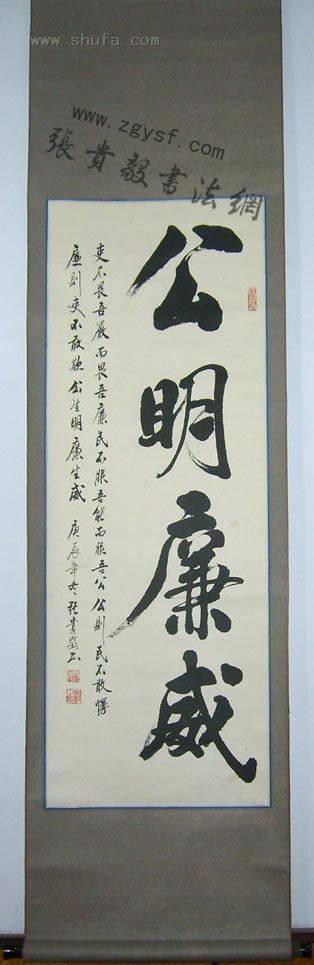 www.shufa.com
www.zgysf.com
張貴毅書法網
公明廉威
吏不畏吾嚴而畏吾廉民不服吾能而服吾公公則民不敢慢
廉則吏不敢欺公生明廉生威 庚辰年冬張貴毅書